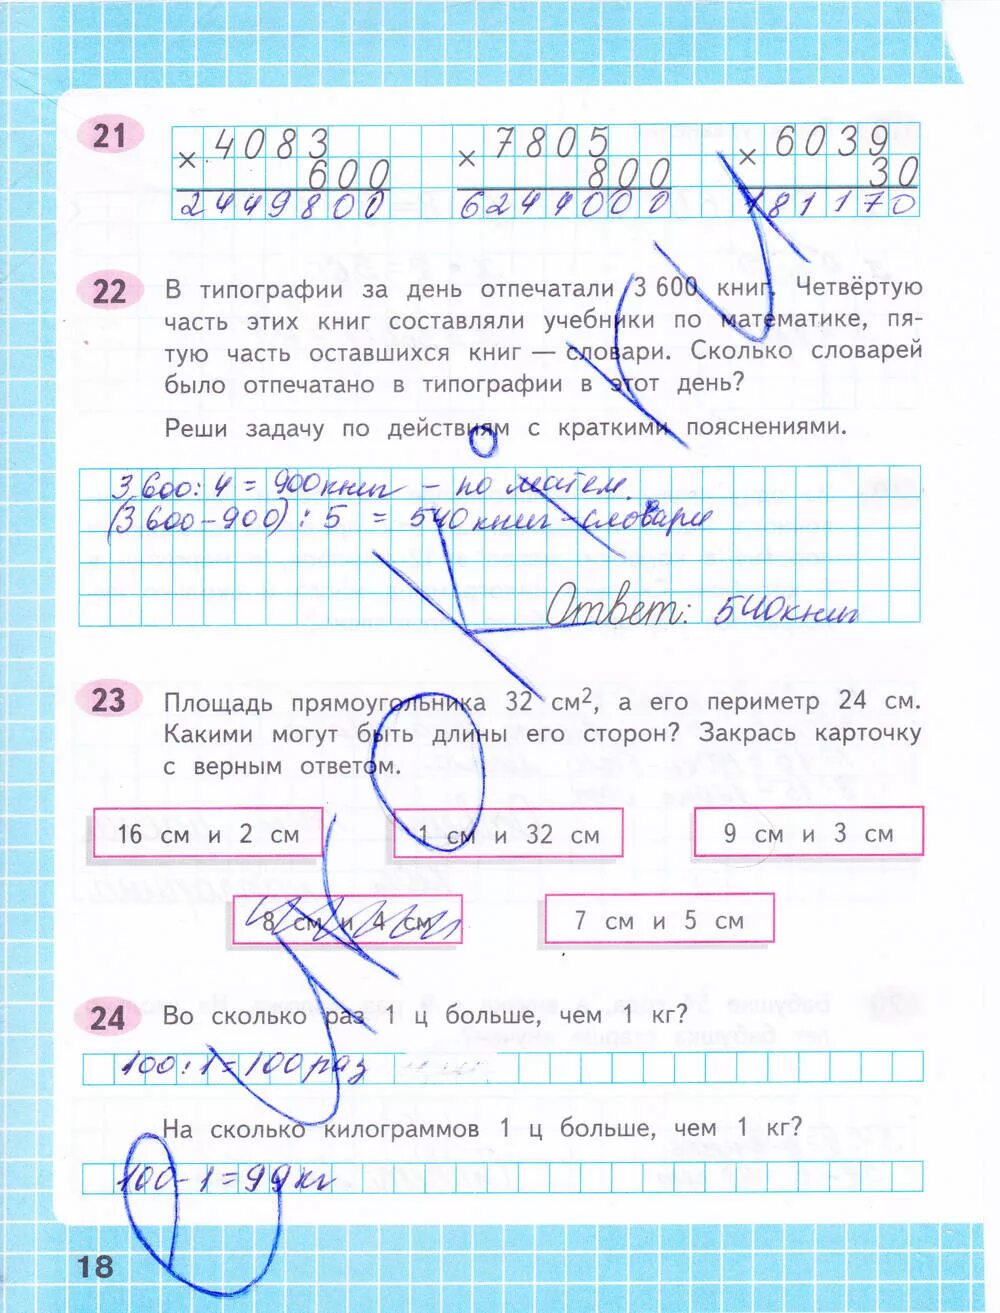 21
× 4083 × 7805 × 6039
600 800 30
2449800 6244000 181170
22 В типографии за день отпечатали 3 600 книг. Четвёртую
часть этих книг составляли учебники по математике, пя-
тую часть оставшихся книг — словари. Сколько словарей
было отпечатано в типографии в этот день?
Реши задачу по действиям с краткими пояснениями.
3 600 : 4 = 900 книг – по матем.
(3 600 – 900) : 5 = 540 книг – словари
Ответ: 540 книг
23 Площадь прямоугольника 32 см², а его периметр 24 см.
Какими могут быть длины его сторон? Закрась карточку
с верным ответом.
16 см и 2 см 1 см и 32 см 9 см и 3 см
8 см и 4 см 7 см и 5 см
24 Во сколько раз 1 ц больше, чем 1 кг?
100 : 1 = 100 раз
На сколько килограммов 1 ц больше, чем 1 кг?
100 – 1 = 99 кг
18